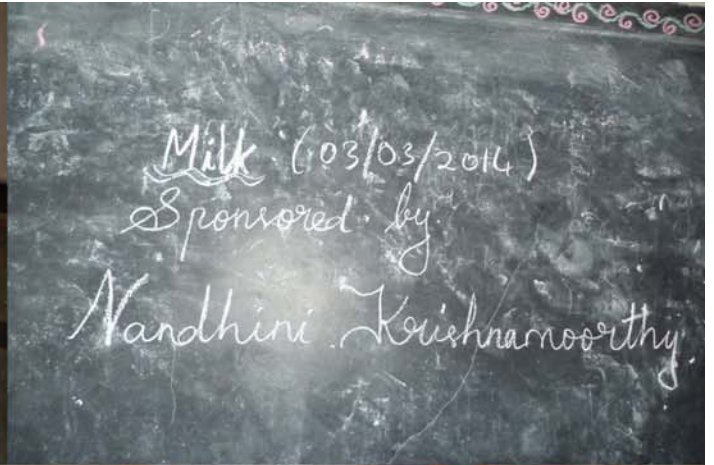 Milk (03/03/2014)
Sponsored by
Nandhini Krishnamoorthy.